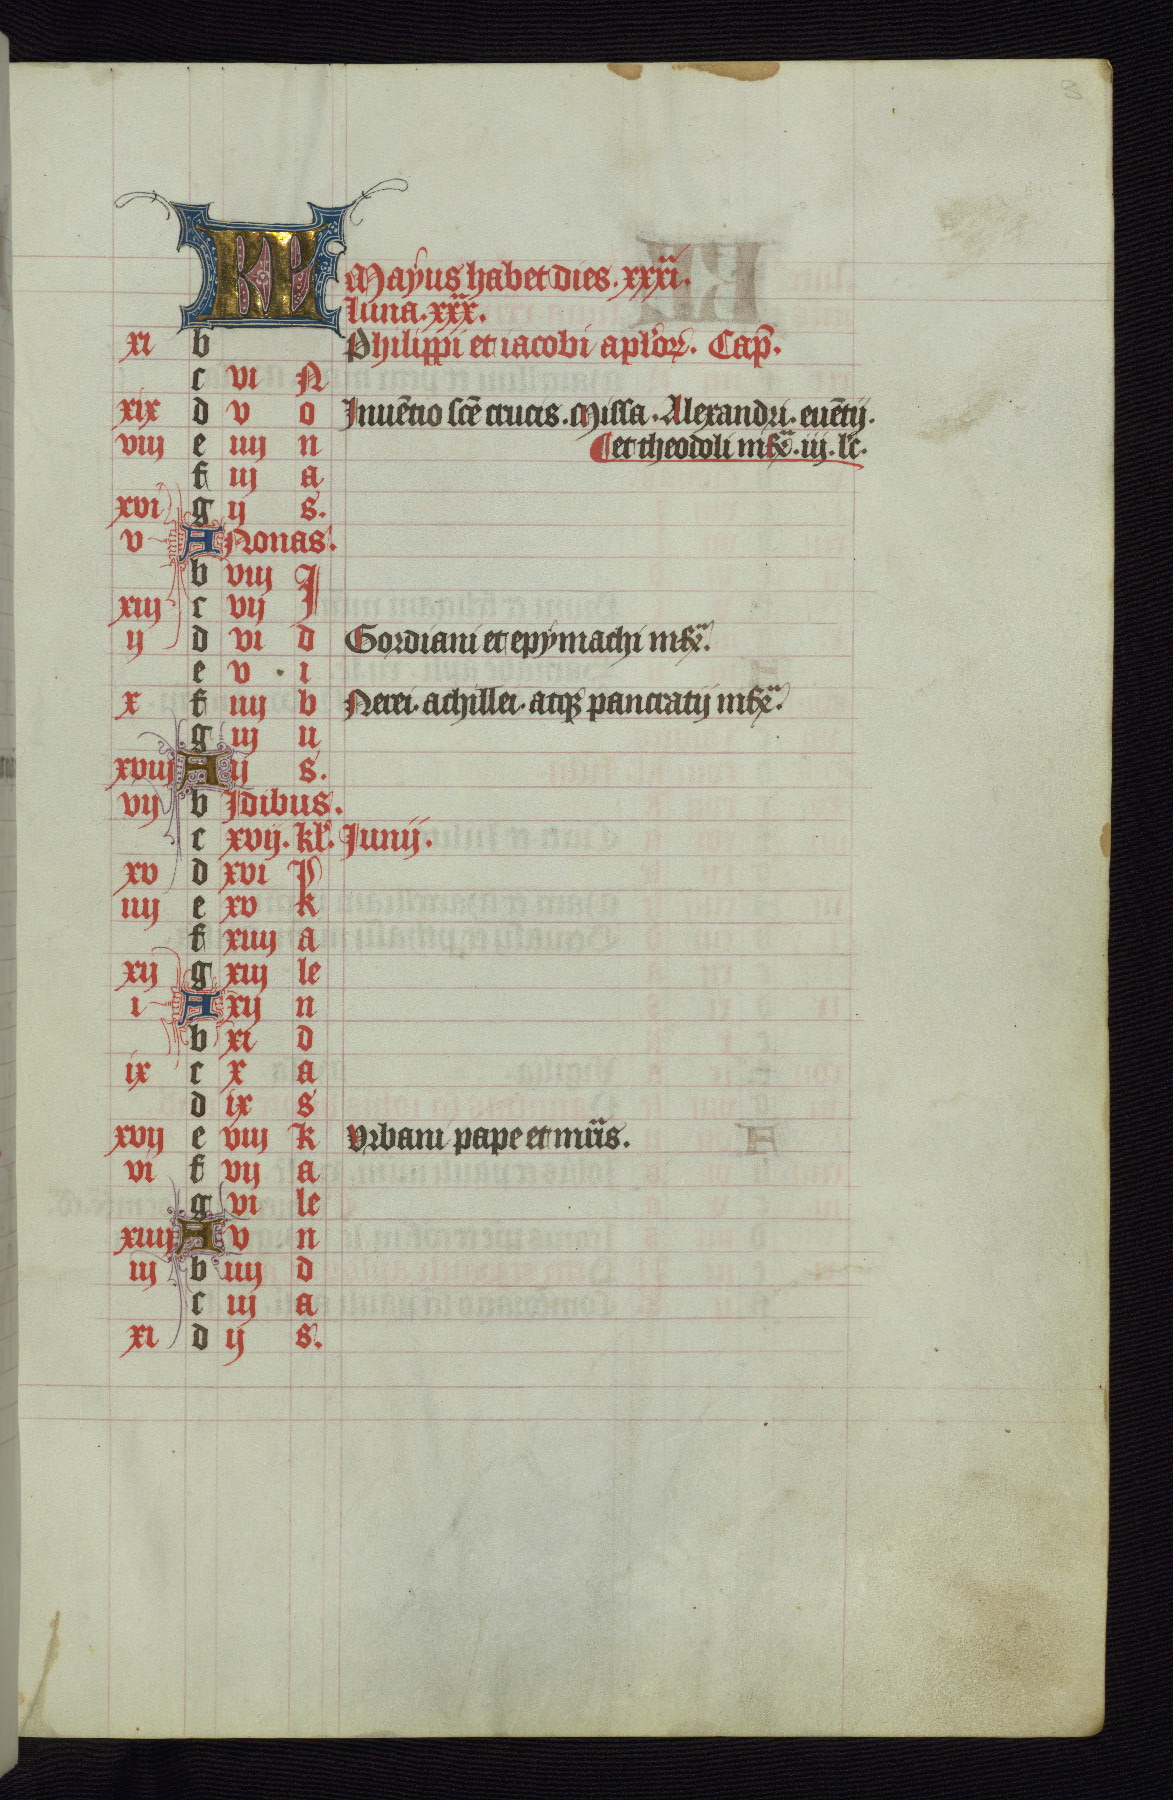 KL Mayus habet dies. xxxi.
luna. xxx.
xi b Philippi et iacobi aplor̄. Cap̄.
c vi N
xix d v o Inuētio scē crucis. Missa. Alexandri. euētij.
viij e iiij n et theodoli mr̄. iij. lc̄.
f iij a
xvi g ij s.
v A Nonas.
b viij I
xiij c vij
ij d vi d Gordiani et epymachi mr̄.
e v i
x f iiij b Nerei. achillei. atq3 pancratij mr̄.
g iij u
xviij A ij s.
vij b Idibus.
c xvij. kl̄. Junij.
xv d xvi P
iiij e xv k
f xiiij a
xij g xiij le
i A xij n
b xi d
ix c x a
d ix s
xvij e viij k Vrbani pape et mr̄is.
vi f vij a
g vi le
xiiij A v n
iij b iiij d
c iij a
xi d ij s.